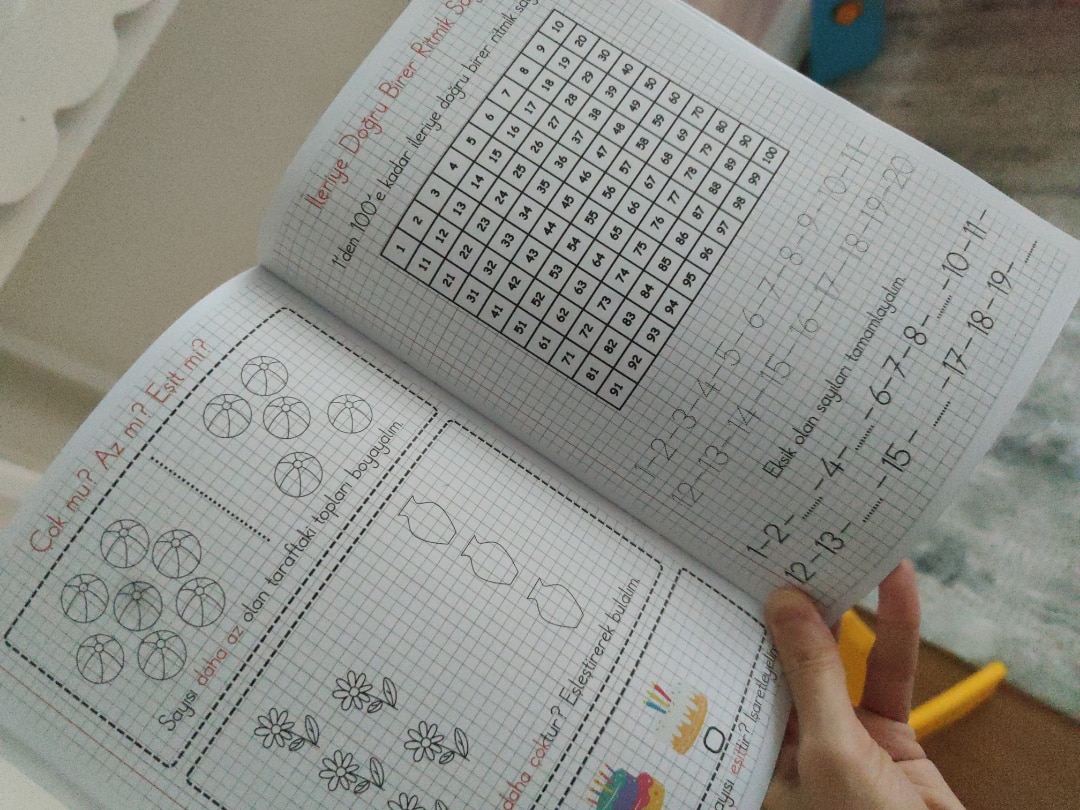 Çok mu? Az mı? Eşit mi?
Sayısı daha az olan taraftaki topları boyayalım.
daha çoktur? Eşleştirerek bulalım.
eşittir? İşaretleyelim
İleriye Doğru Birer Ritmik
1'den 100'e kadar ileriye doğru birer ritmik
1 2 3 4 5 6 7 8 9 10
11 12 13 14 15 16 17 18 19 20
21 22 23 24 25 26 27 28 29 30
31 32 33 34 35 36 37 38 39 40
41 42 43 44 45 46 47 48 49 50
51 52 53 54 55 56 57 58 59 60
61 62 63 64 65 66 67 68 69 70
71 72 73 74 75 76 77 78 79 80
81 82 83 84 85 86 87 88 89 90
91 92 93 94 95 96 97 98 99 100
1-2-3-4-5-6-7-8-9-10-11-
12-13-14-15-16-17-18-19-20
Eksik olan sayıları tamamlayalım.
1-2-......-4-......-6-7-8-......-10-11-
12-13-......-15-......-17-18-19-......